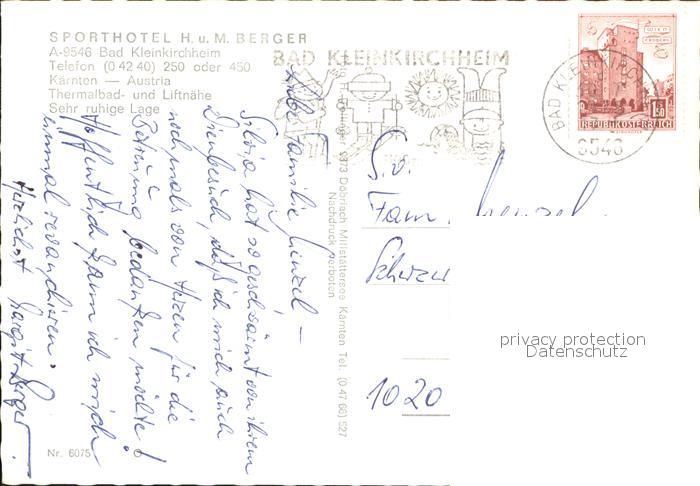 SPORTHOTEL H. u. M. BERGER
A-9546 Bad Kleinkirchheim
Telefon (0 42 40) 250 oder 450
Kärnten — Austria
Thermalbad- und Liftnähe
Sehr ruhige Lage
BAD KLEINKIRCHHEIM
WIEN
ERDBERG
1.50
REPUBLIK ÖSTERREICH
BAD KLEINKIRCHHEIM
9546
Liebe Familie Menzel –
Silvia hat so geschwärmt von ihrem
, daß ich mich auch
nochmals von Herzen für die
Betreuung bedanken möchte!
Hoffentlich kann ich mich
einmal revanchieren.
Herzlichst Margit Berger.
9873 Döbriach Millstättersee Kärnten Tel. (0 47 66) 527
Nachdruck verboten
Fam. Menzel
1020
privacy protection
Datenschutz
Nr. 6075